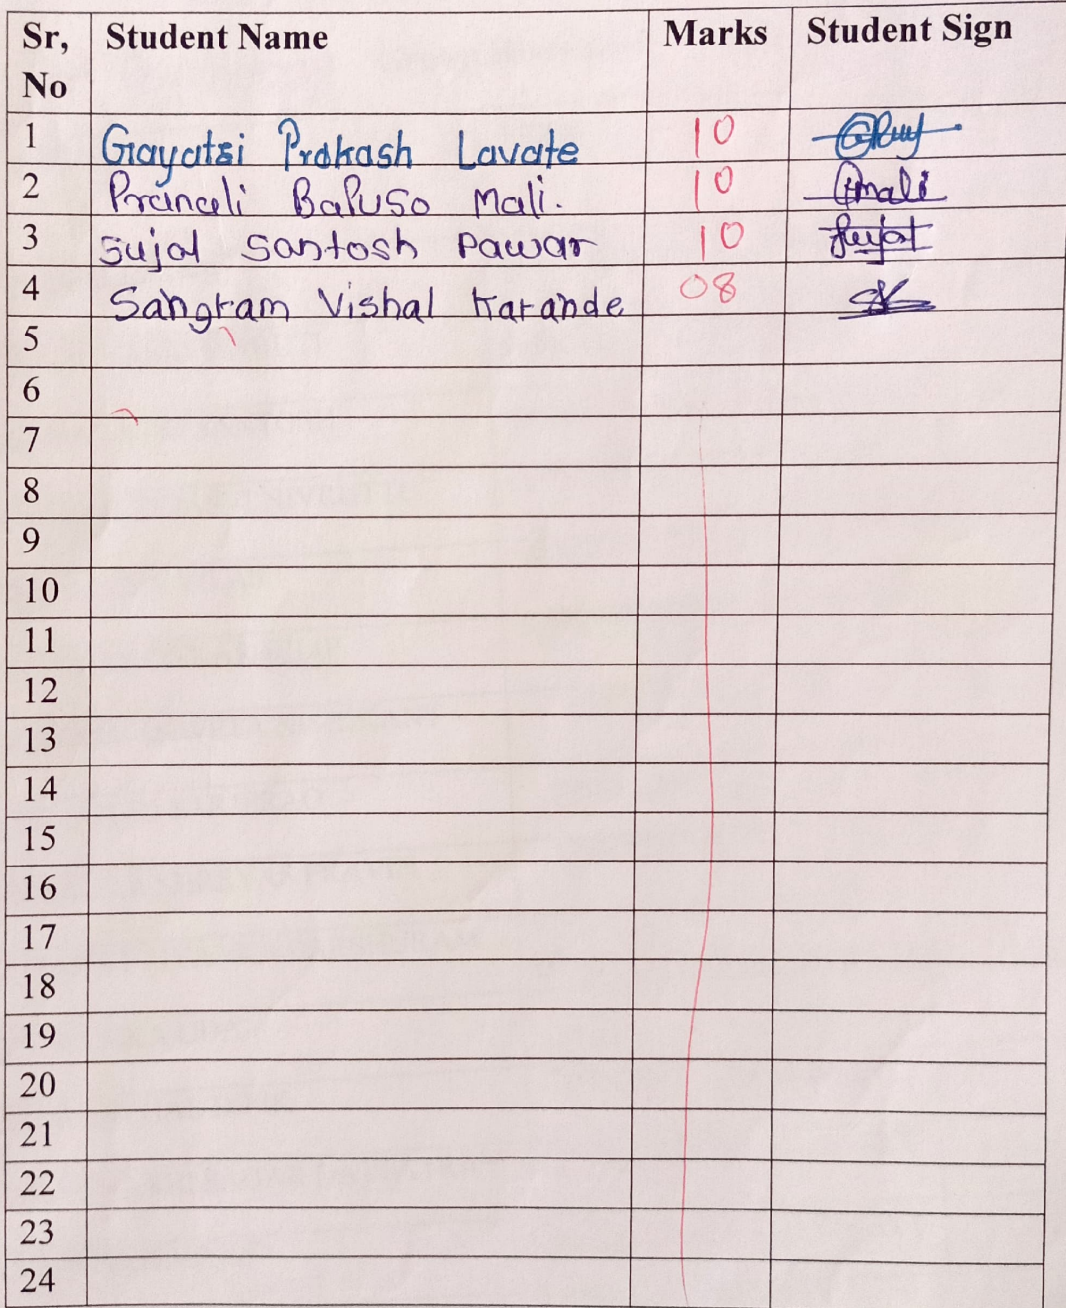 Sr, No Student Name Marks Student Sign
1 Gayatri Prakash Lavate 10
2 Pranali Bapuso Mali. 10 Pmali
3 Sujal Santosh Pawar 10 Sujal
4 Sangram Vishal Karande 08
5
6
7
8
9
10
11
12
13
14
15
16
17
18
19
20
21
22
23
24